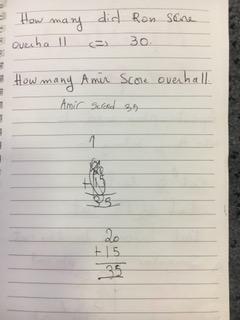 How many did Ron Score
overha ll <=> 30.
How many Amir Score overhall
Amir scored 35
1
+15
35
20
+15
35